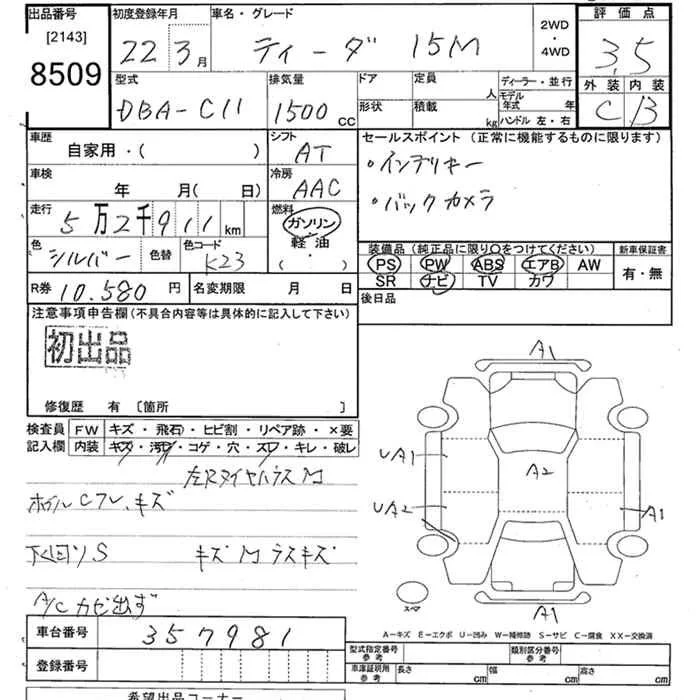 出品番号 [2143] 8509
初度登録年月 22 3月
車名・グレード ティーダ 15M
2WD ・ 4WD
評価点 3.5
型式 DBA-C11
排気量 1500 CC
ドア 形状
定員 人
積載 kg
ディーラー・並行
モデル年式 年
ハンドル 左・右
外装 C 内装 B
車歴 自家用・( )
シフト AT
車検 年 月( 日)
冷房 AAC
走行 5万2千911km
燃料 ガソリン・軽油・( )
色 シルバー 色替
色コード K23
R券 10.580円
名変期限 月 日
セールスポイント(正常に機能するものに限ります)
・インテリキー
・バックカメラ
装備品(純正品に限り〇をつけてください)
PS PW ABS エアB AW
SR ナビ TV カワ
新車保証書 有・無
後日品
注意事項申告欄(不具合内容等は具体的に記入して下さい)
初出品
修復歴 有 〔箇所 〕
検査員記入欄
FW キズ・飛石・ヒビ割・リペア跡・×要
内装 キズ・汚れ・コゲ・穴・スレ・キレ・破レ
ホイルCフレ、キズ
下回りS
A/Cカビ出ず
A1
UA1
A2
UA2
A1
スペア
A1
A-キズ E-エクボ U-凹み W-補修跡 S-サビ C-腐食 XX-交換済
車台番号 357981
登録番号
型式指定番号 参考
類別区分番号 参考
車庫証明用 参考 長さ cm 幅 cm 高さ cm
希望出品コーナー